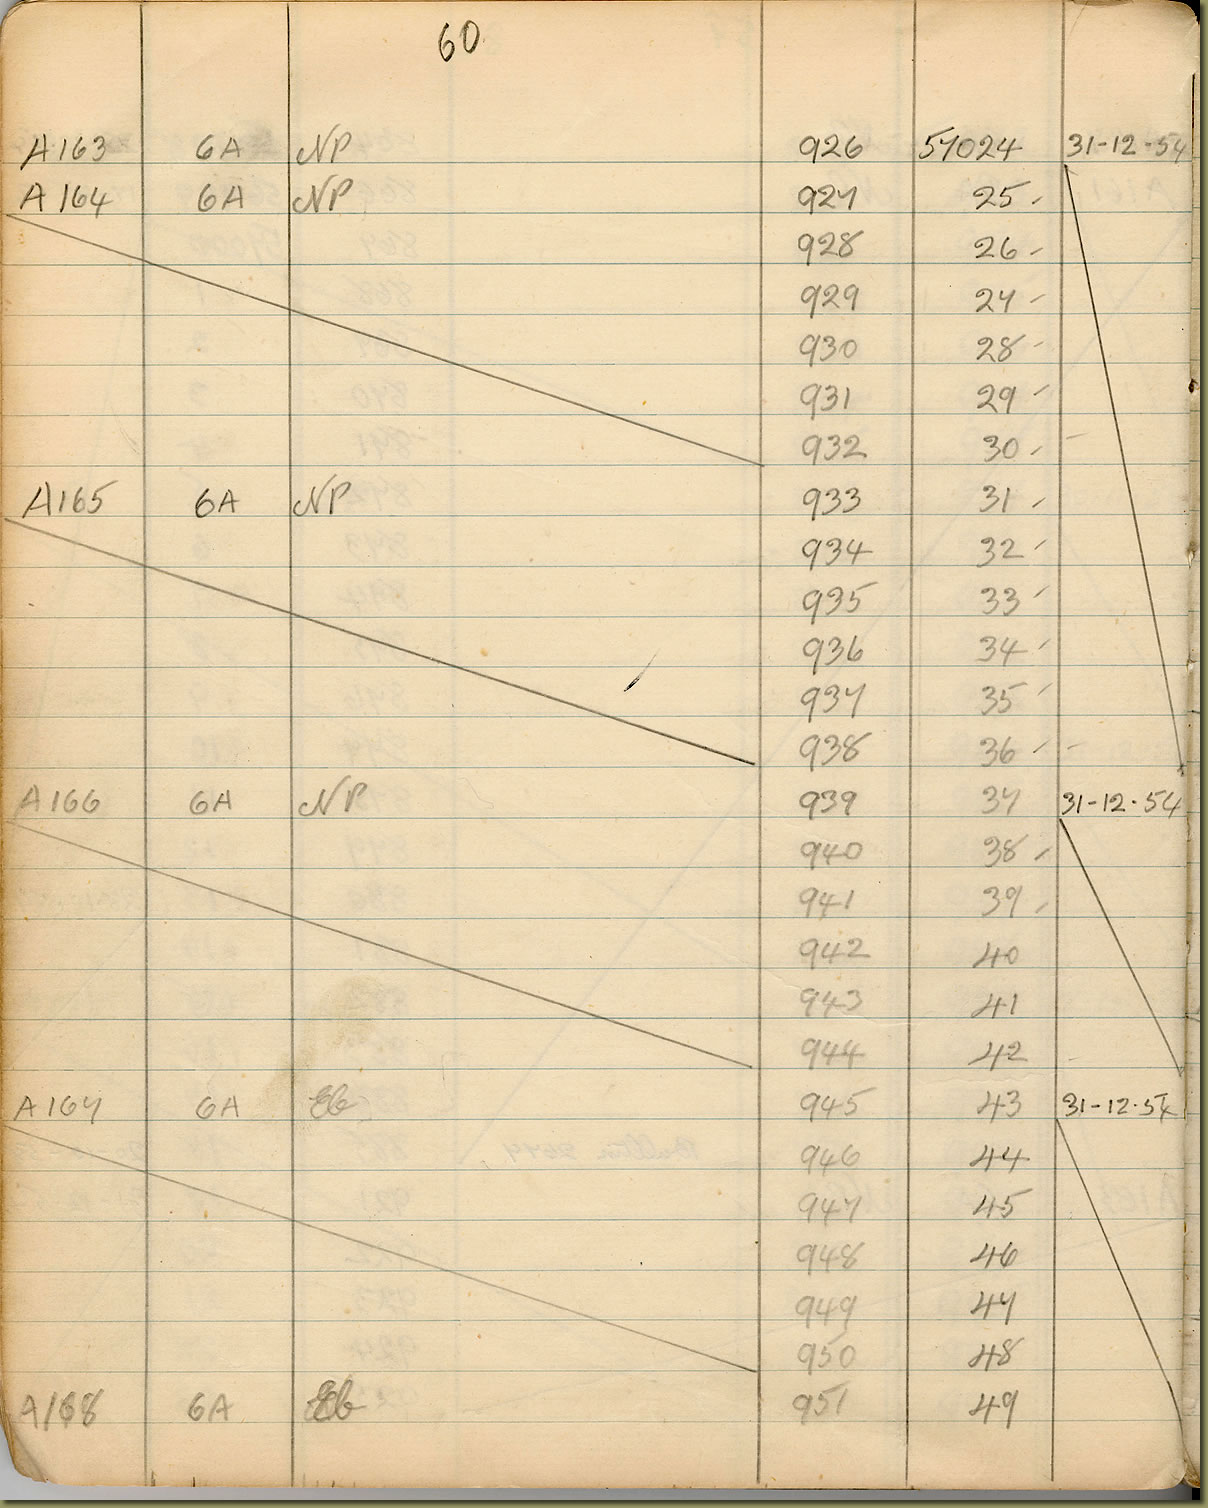 60
A163 6A NP 926 57024 31-12-54
A164 6A NP 927 25
928 26
929 27
930 28
931 29
932 30
A165 6A NP 933 31
934 32
935 33
936 34
937 35
938 36
A166 6A NP 939 37 31-12-54
940 38
941 39
942 40
943 41
944 42
A167 6A Eb 945 43 31-12-54
946 44
947 45
948 46
949 47
950 48
A168 6A Eb 951 49